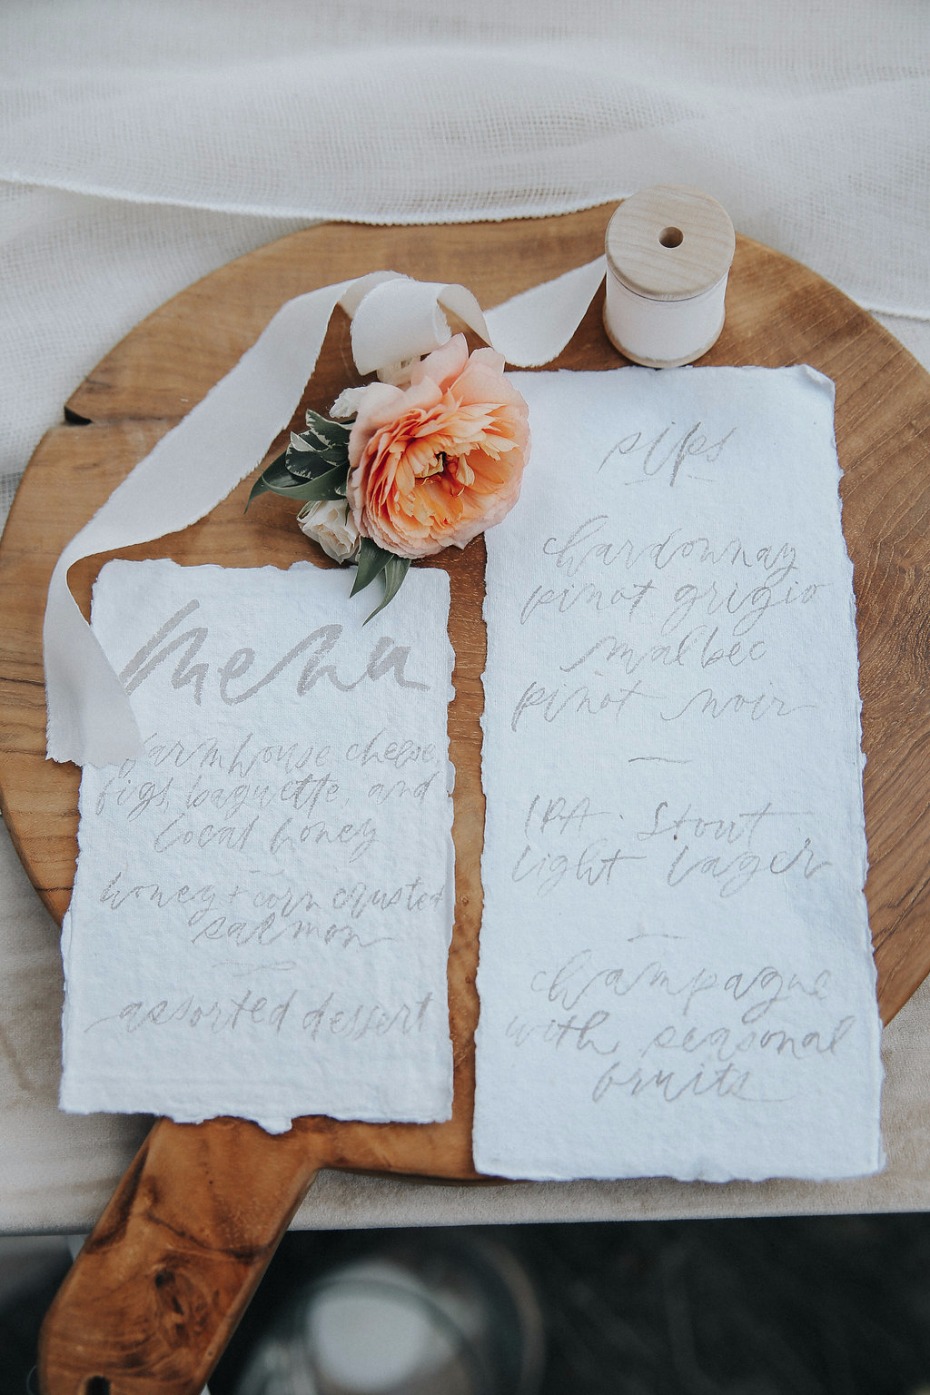 Menu
farmhouse cheese,
figs, baguette, and
local honey
honey + corn crusted
salmon
assorted dessert
sips
chardonnay
pinot grigio
malbec
pinot noir
IPA · Stout
light lager
champagne
with seasonal
fruits